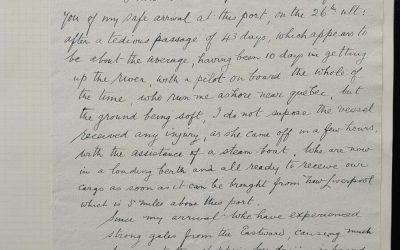 you of my safe arrival at this port, on the 26th ult:
after a tedious passage of 43 days, which appears to
be about the average, having been 10 days in getting
up the River, with a pilot on board the whole of
the time who run me ashore near Quebec, but
the ground being soft, I do not supose the vessel
received any injury, as she came off in a few hours,
with the assistance of a steam boat, Whe are now
in a loading berth and all ready to receive our
cargo as soon as it can be braught from New Liverpool
which is 5 miles above this port.
Since my arrival whe have experienced
strong gales from the Eastward, causing much